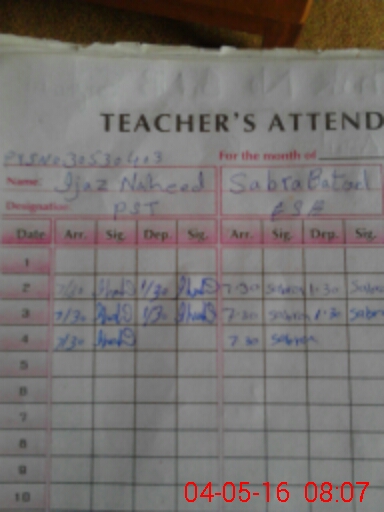 TEACHER'S ATTEND
30530403 For the month of
Name: Ijaz Naheed Sabra Batool
Designation PST
Date Arr. Sig. Dep. Sig. Arr. Sig. Dep. Sig.
1
2 7/30 1/30 7:30 Sabra 1:30 Sabra
3 7/30 1/30 7:30 Sabra 1:30 Sabra
4 7/30 7:30 Sabra
5
6
7
8
9
10
04-05-16 08:07